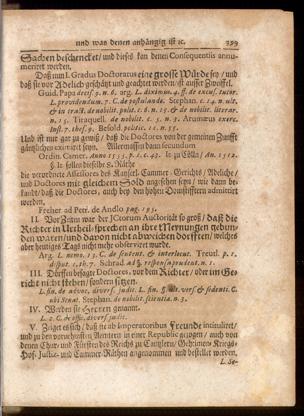 und was denen anhängig ist ꝛc. 399
Sachen beschencket/ und dieses kan denen Consequentiis annu-
meriret werden.
Daß nun I. Gradus Doctoratus eine grosse Würde sey/ und
daß sie vor Adelich geschätzt und geachtet werden/ ist ausser Zweiffel.
Guid. Papa decis. 9. n. 6. arg. L. diximus. 4. ff. de excus. tutor.
L. providendum. 7. C. de postulando. Stephan. c. 14. n. ult.
& in tract. de nobilit. polit. c. 8. n. 15. & de nobilit. literar.
n. 15. Tiraquell. de nobilit. c. 5. n. 5. Arumæus exerc.
Inst. 7. thes. 9. Besold. politic. 11. n. 55.
Und ist nur gar zu gewiß/ daß die Doctores von der gemeinen Zunfft
gäntzlichen eximiret seyn. Allermassen dann secundum
Ordin. Camer. Anno 1555. p. 1. c. 43. It. zu Cölln/ An. 1512.
§. In fellen dieselbe 8. Räthe
die verordnete Assessores des Kayserl. Cammer-Gerichts/ Adeliche/
und Doctores mit gleichem Sold angesehen seyn/ wie dann be-
kandt/ daß die Doctores, auch bey den hohen Domstifftern admittiret
werden.
Freher ad Petr. de Andlo pag. 195.
II. Vor Zeiten war der JCtorum Auctorität so groß/ daß die
Richter in Urtheil-sprechen an ihre Meynungen gebun-
den waren/ und davon nicht abweichen dorfften/ welches
aber heutiges Tages nicht mehr observiret wurde.
Arg. L. nemo. 13. C. de sentent. & interlocut. Treutl. p. 1.
disput. 1. th. 7. Schrad. ad §. responsa prudent. n. 1.
III. Dürffen besagte Doctores, vor dem Richter/ oder im Ge-
richt nicht stehen/ sondern sitzen.
L. fin. de advoc. divers. judic. L. fin. §. ult. vers. & sedenti. C.
ubi Senat. Stephan. de nobilit. scientia. n. 3.
IV. Werden sie Herren genannt.
L. 2. C. de offic. divers. judic.
V. Zeiget es sich/ daß sie ab Imperatoribus Freunde intituliret/
und zu den vornehmsten Aemtern in einer Republic gezogen/ auch von
denen Chur- und Fürsten des Reichs zu Cantzlern/ Geheimen Kriegs-
Hof- Justiz- und Cammer-Räthen angenommen und bestellet werden.
L. Se-